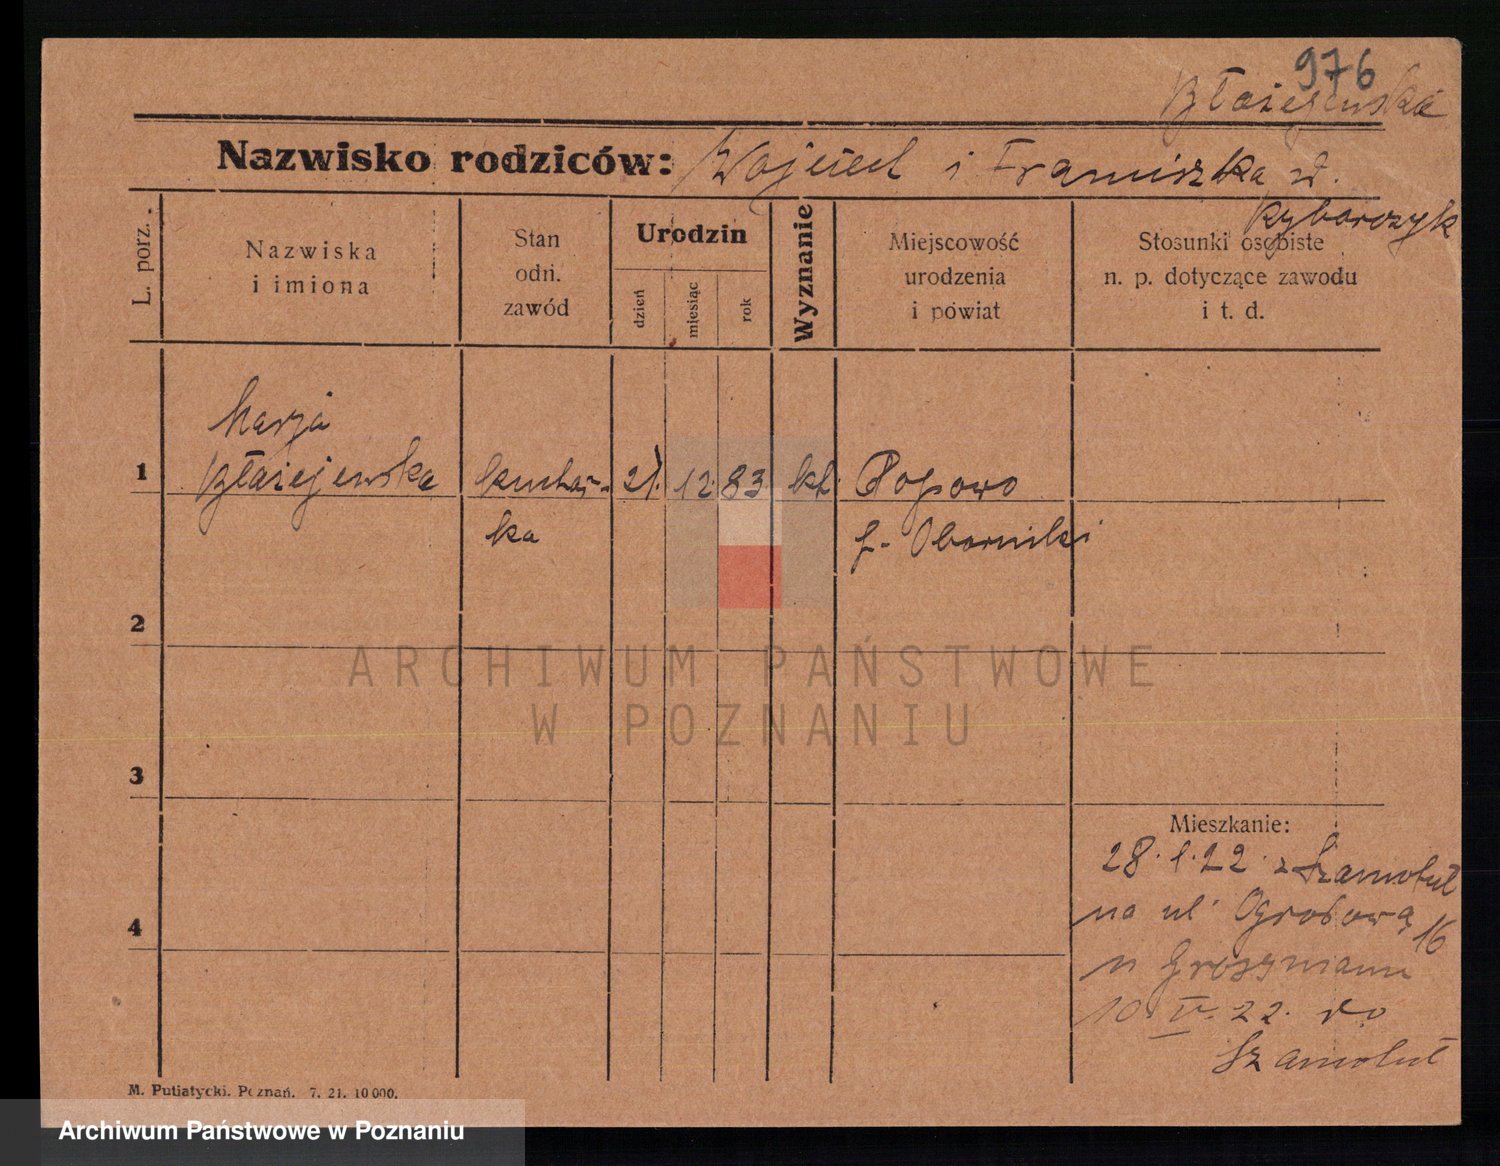 976
Błażejewski
Nazwisko rodziców: Wojciech i Franciszka d.
Ryborczyk
L. porz.
Nazwiska
i imiona
Stan
odn.
zawód
Urodzin
dzień
miesiąc
rok
Wyznanie
Miejscowość
urodzenia
i powiat
Stosunki osobiste
n. p. dotyczące zawodu
i t. d.
Marja
1 Błażejewska kuchar- 21. 12. 83 kt. Popowo
ka p. Oborniki
2
3
4
Mieszkanie:
28.1.22. z Szamotuł
na ul. Ogrodową 16
u
10 IV. 22. do
Szamotuł
M. Putiatycki. Poznań. 7. 21. 10000.
ARCHIWUM PAŃSTWOWE
W POZNANIU
Archiwum Państwowe w Poznaniu